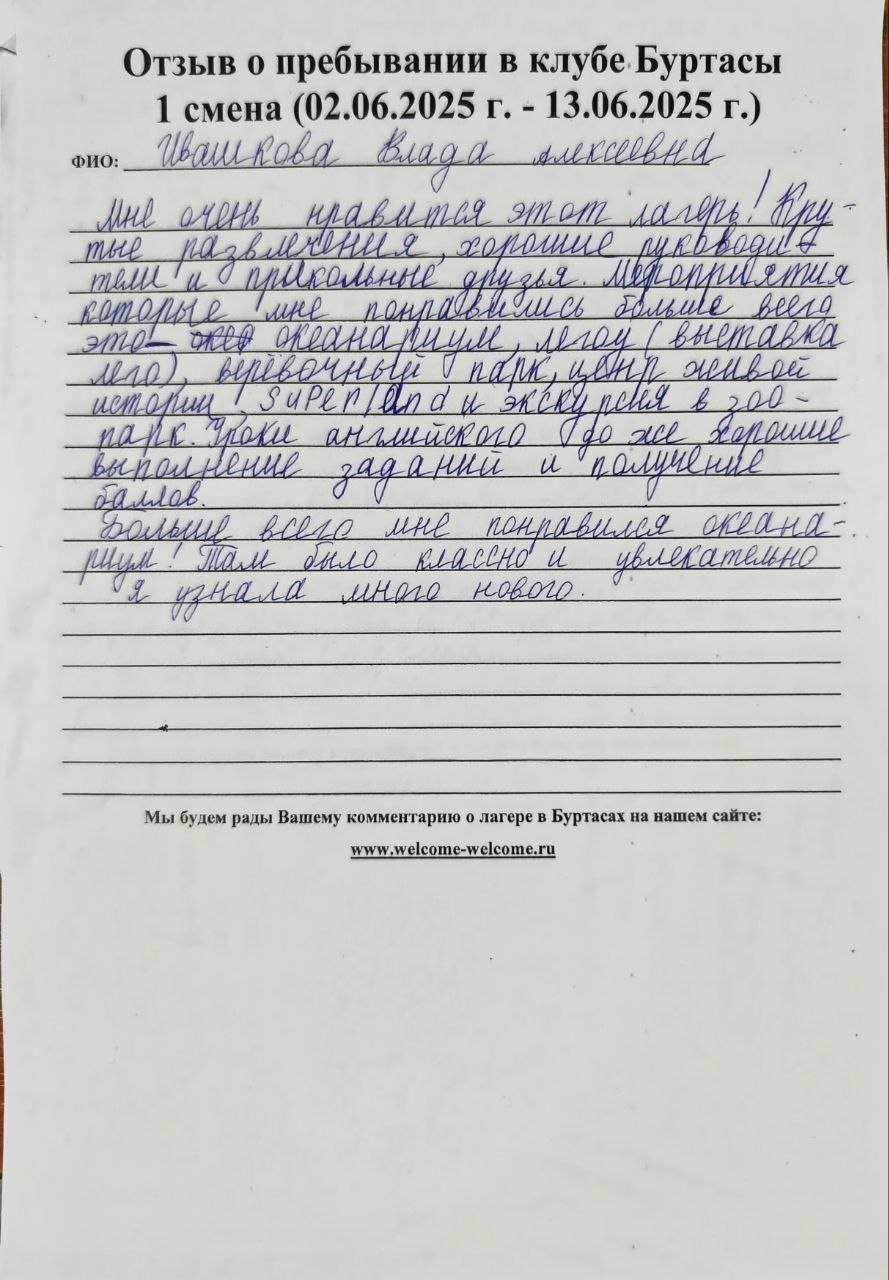 Отзыв о пребывании в клубе Буртасы
1 смена (02.06.2025 г. - 13.06.2025 г.)
ФИО: Ивашкова Влада Алексеевна
Мне очень нравится этот лагерь! Кру-
тые развлечения, хорошие руководи-
тели и прикольные друзья. Мероприятия
которые мне понравились больше всего
это- океанариум, легоу (выставка
лего), верёвочный парк, центр живой
истории, Superland и экскурсия в зоо-
парк. Уроки английского то же хорошие
выполнение заданий и получение
баллов.
Больше всего мне понравился океана-
риум! Там было классно и увлекательно
я узнала много нового.
Мы будем рады Вашему комментарию о лагере в Буртасах на нашем сайте:
www.welcome-welcome.ru